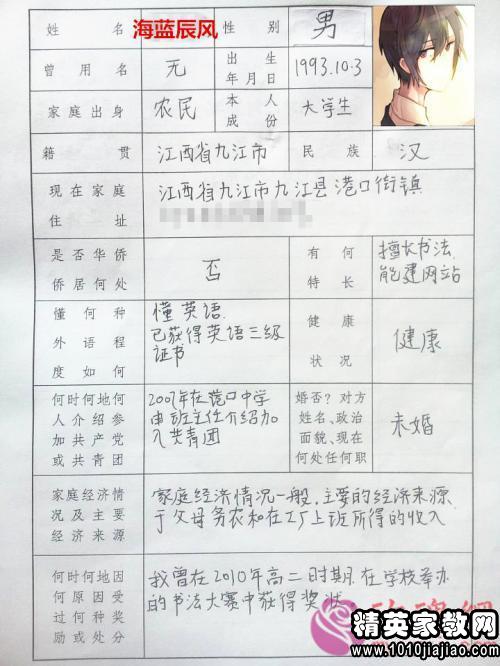 姓 名 海蓝辰风 性 别 男
曾 用 名 无 出 生
年 月 日 1993.10.3
家 庭 出 身 农民 本 人
成 份 大学生
籍 贯 江西省九江市 民 族 汉
现 在 家 庭
住 址
江西省九江市九江县港口街镇
是 否 华 侨
侨 居 何 处
否
有 何
特 长
擅长书法
能建网站
懂 何 种
外 语 程
度 如 何
懂英语.
已获得英语三级
证书
健 康
状 况
健康
何时何地何
人 介 绍 参
加 共 产 党
或 共 青 团
2007年在港口中学
由班主任介绍加
入共青团
婚否?对方
姓名、政治
面貌、现在
何处任何职
未婚
家庭经济情
况 及 主 要
经 济 来 源
家庭经济情况一般,主要的经济来源
于父母务农和在工厂上班所得的收入
何时何地因
何 原 因 受
过 何 种 奖
励 或 处 分
我曾在2010年高二时期在学校举办
的书法大赛中获得奖状
精英家教网
www.1010jiajiao.com